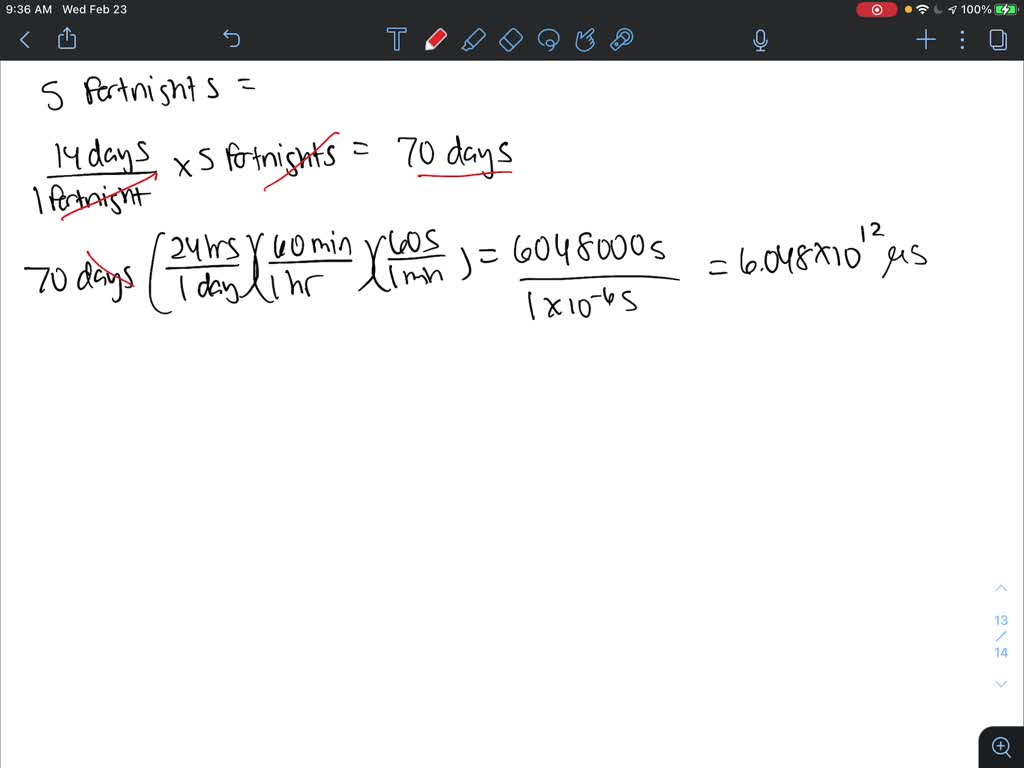 9:36 AM Wed Feb 23 100%
5 Fortnights =
14 days / 1 Fortnight × 5 Fortnights = 70 days
70 days (24 hrs / 1 day)(60 min / 1 hr)(60s / 1 min) = 6048000s / 1×10⁻⁶s = 6.048×10¹² μs
13
/
14